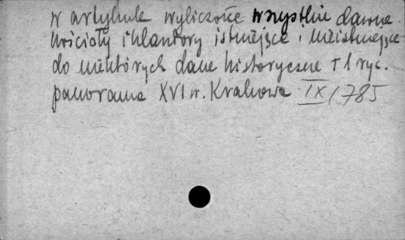 w artykule wyliczone wszystkie dawne
kościoły i klasztory istniejące i nieistniejące
do niektórych dane historyczne + 1 ryc.
panorama XVI w. Krakowa IX/785